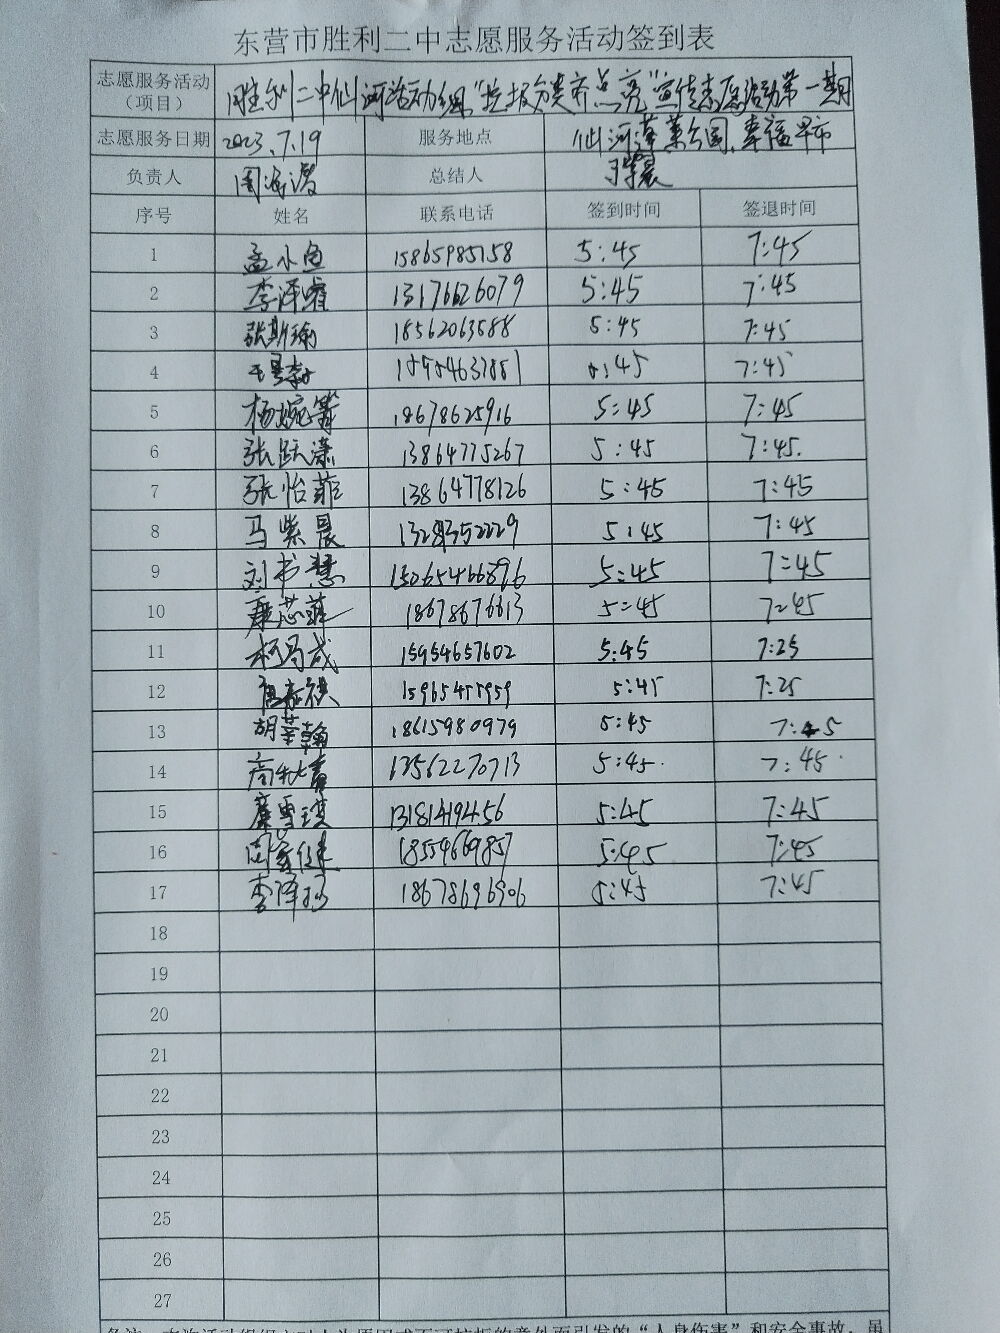 东营市胜利二中志愿服务活动签到表
志愿服务活动（项目） 胜利二中仙河活动组“垃圾分类齐点亮”宣传志愿活动第一期
志愿服务日期 2023.7.19 服务地点 仙河蓬莱公园、幸福早市
负责人 总结人
序号 姓名 联系电话 签到时间 签退时间
1 孟小鱼 15865985158 5:45 7:45
2 李泽睿 13176626079 5:45 7:45
3 张斯瑜 18562063588 5:45 7:45
4 5:45 7:45
5 杨婉箐 18678625916 5:45 7:45
6 张跃潇 13864775267 5:45 7:45.
7 张怡菲 13864778126 5:45 7:45
8 马紫晨 5:45 7:45
9 刘书慧 15065466896 5:45 7:45
10 康芯菲 18678676613 5:45 7:45
11 15954657602 5:45 7:25
12 5:45 7:25
13 胡荃翰 18615980979 5:45 7:45
14 13562270713 5:45. 7:45.
15 廉雪琪 13181419456 5:45 7:45
16 18554669857 5:45 7:45
17 李泽 18678696906 5:45 7:45
18
19
20
21
22
23
24
25
26
27